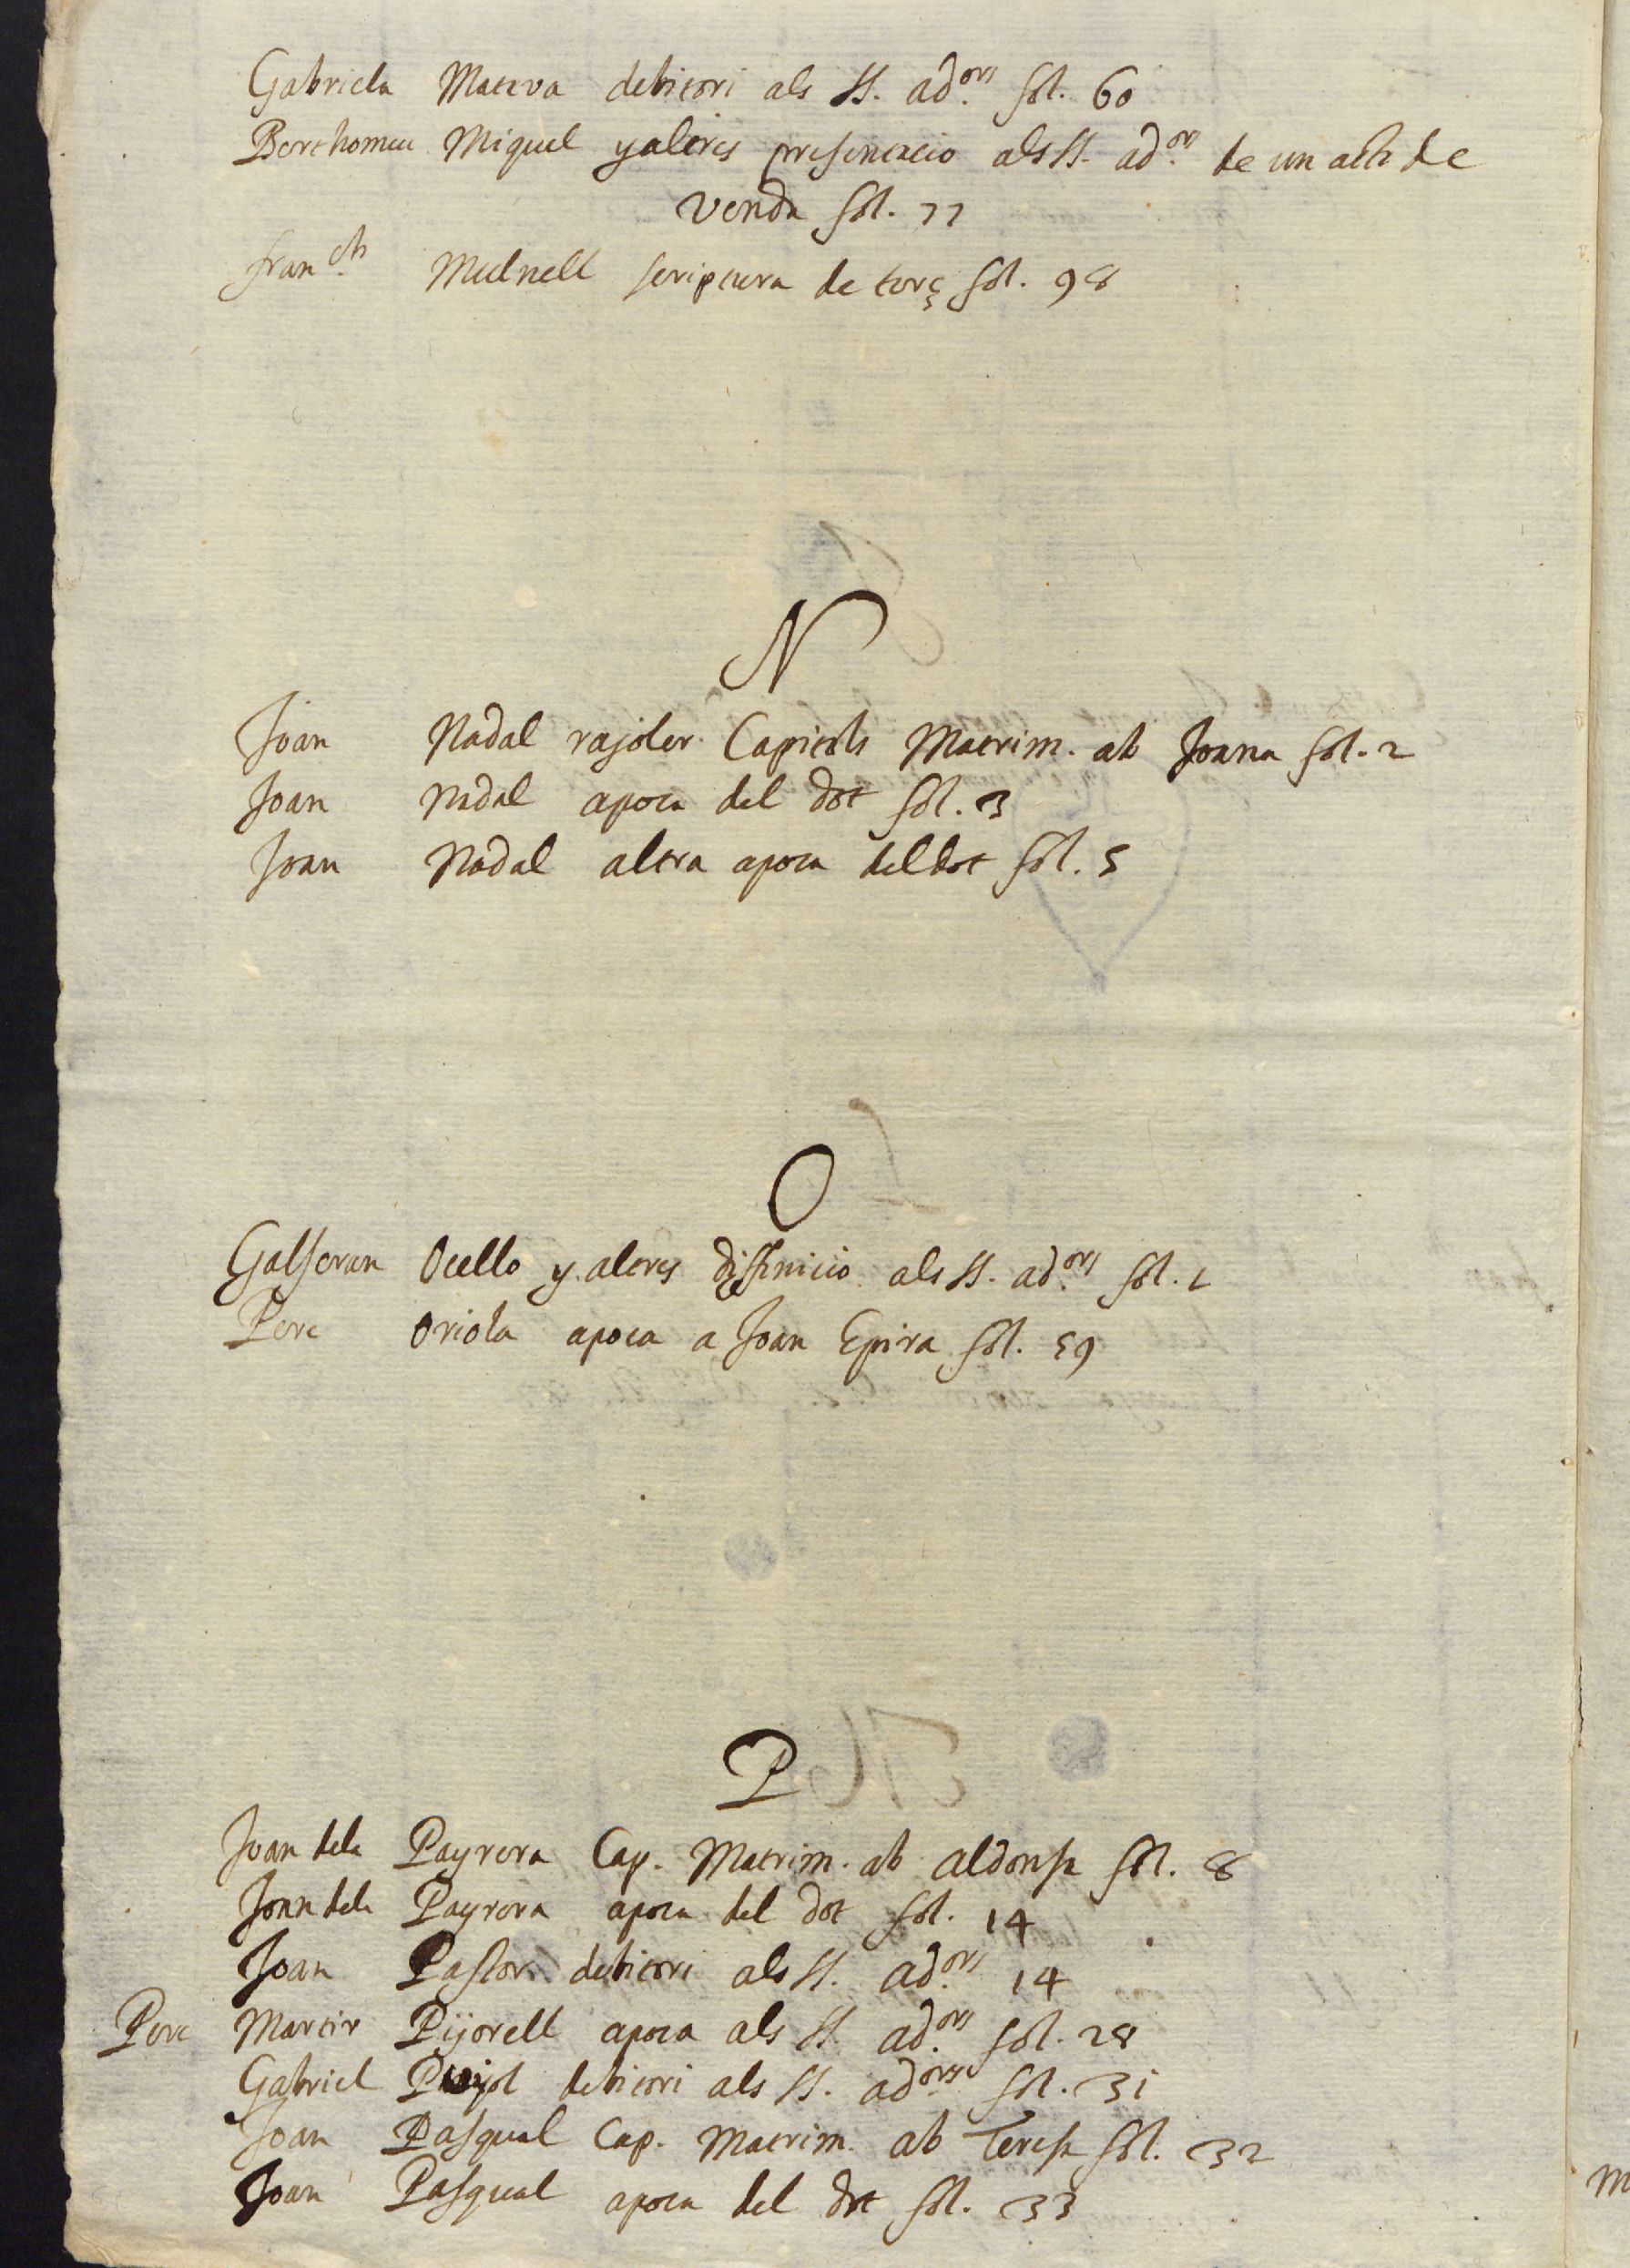 Gabriela Mateva debitori als SS. ad.ors fol. 60
Barthomeu Miquel y altres presentacio als SS. ad.ors de un acte de
venda fol. 77
fran.ch Mulnell scriptura de terç fol. 98
N
Joan Nadal rajoler Capitols Matrim. ab Joana fol. 2
Joan Nadal apoca del dot fol. 3
Joan Nadal altra apoca del dot fol. 5
O
Galseran Ocello y altres diffinicio als SS. ad.ors fol. 1
Pere Oriola apoca a Joan Epira fol. 59
P
Joan dela Payrera Cap. Matrim. ab Aldonsa fol. 8
Joan dela Payrera apoca del dot fol. 14
Joan Pastor debitori als SS. ad.ors 14
Pere Martir Pijorell apoca als SS. ad.ors fol. 28
Gabriel Pujol debitori als SS. ad.ors fol. 31
Joan Pasqual Cap. Matrim. ab Teresa fol. 32
Joan Pasqual apoca del dot fol. 33